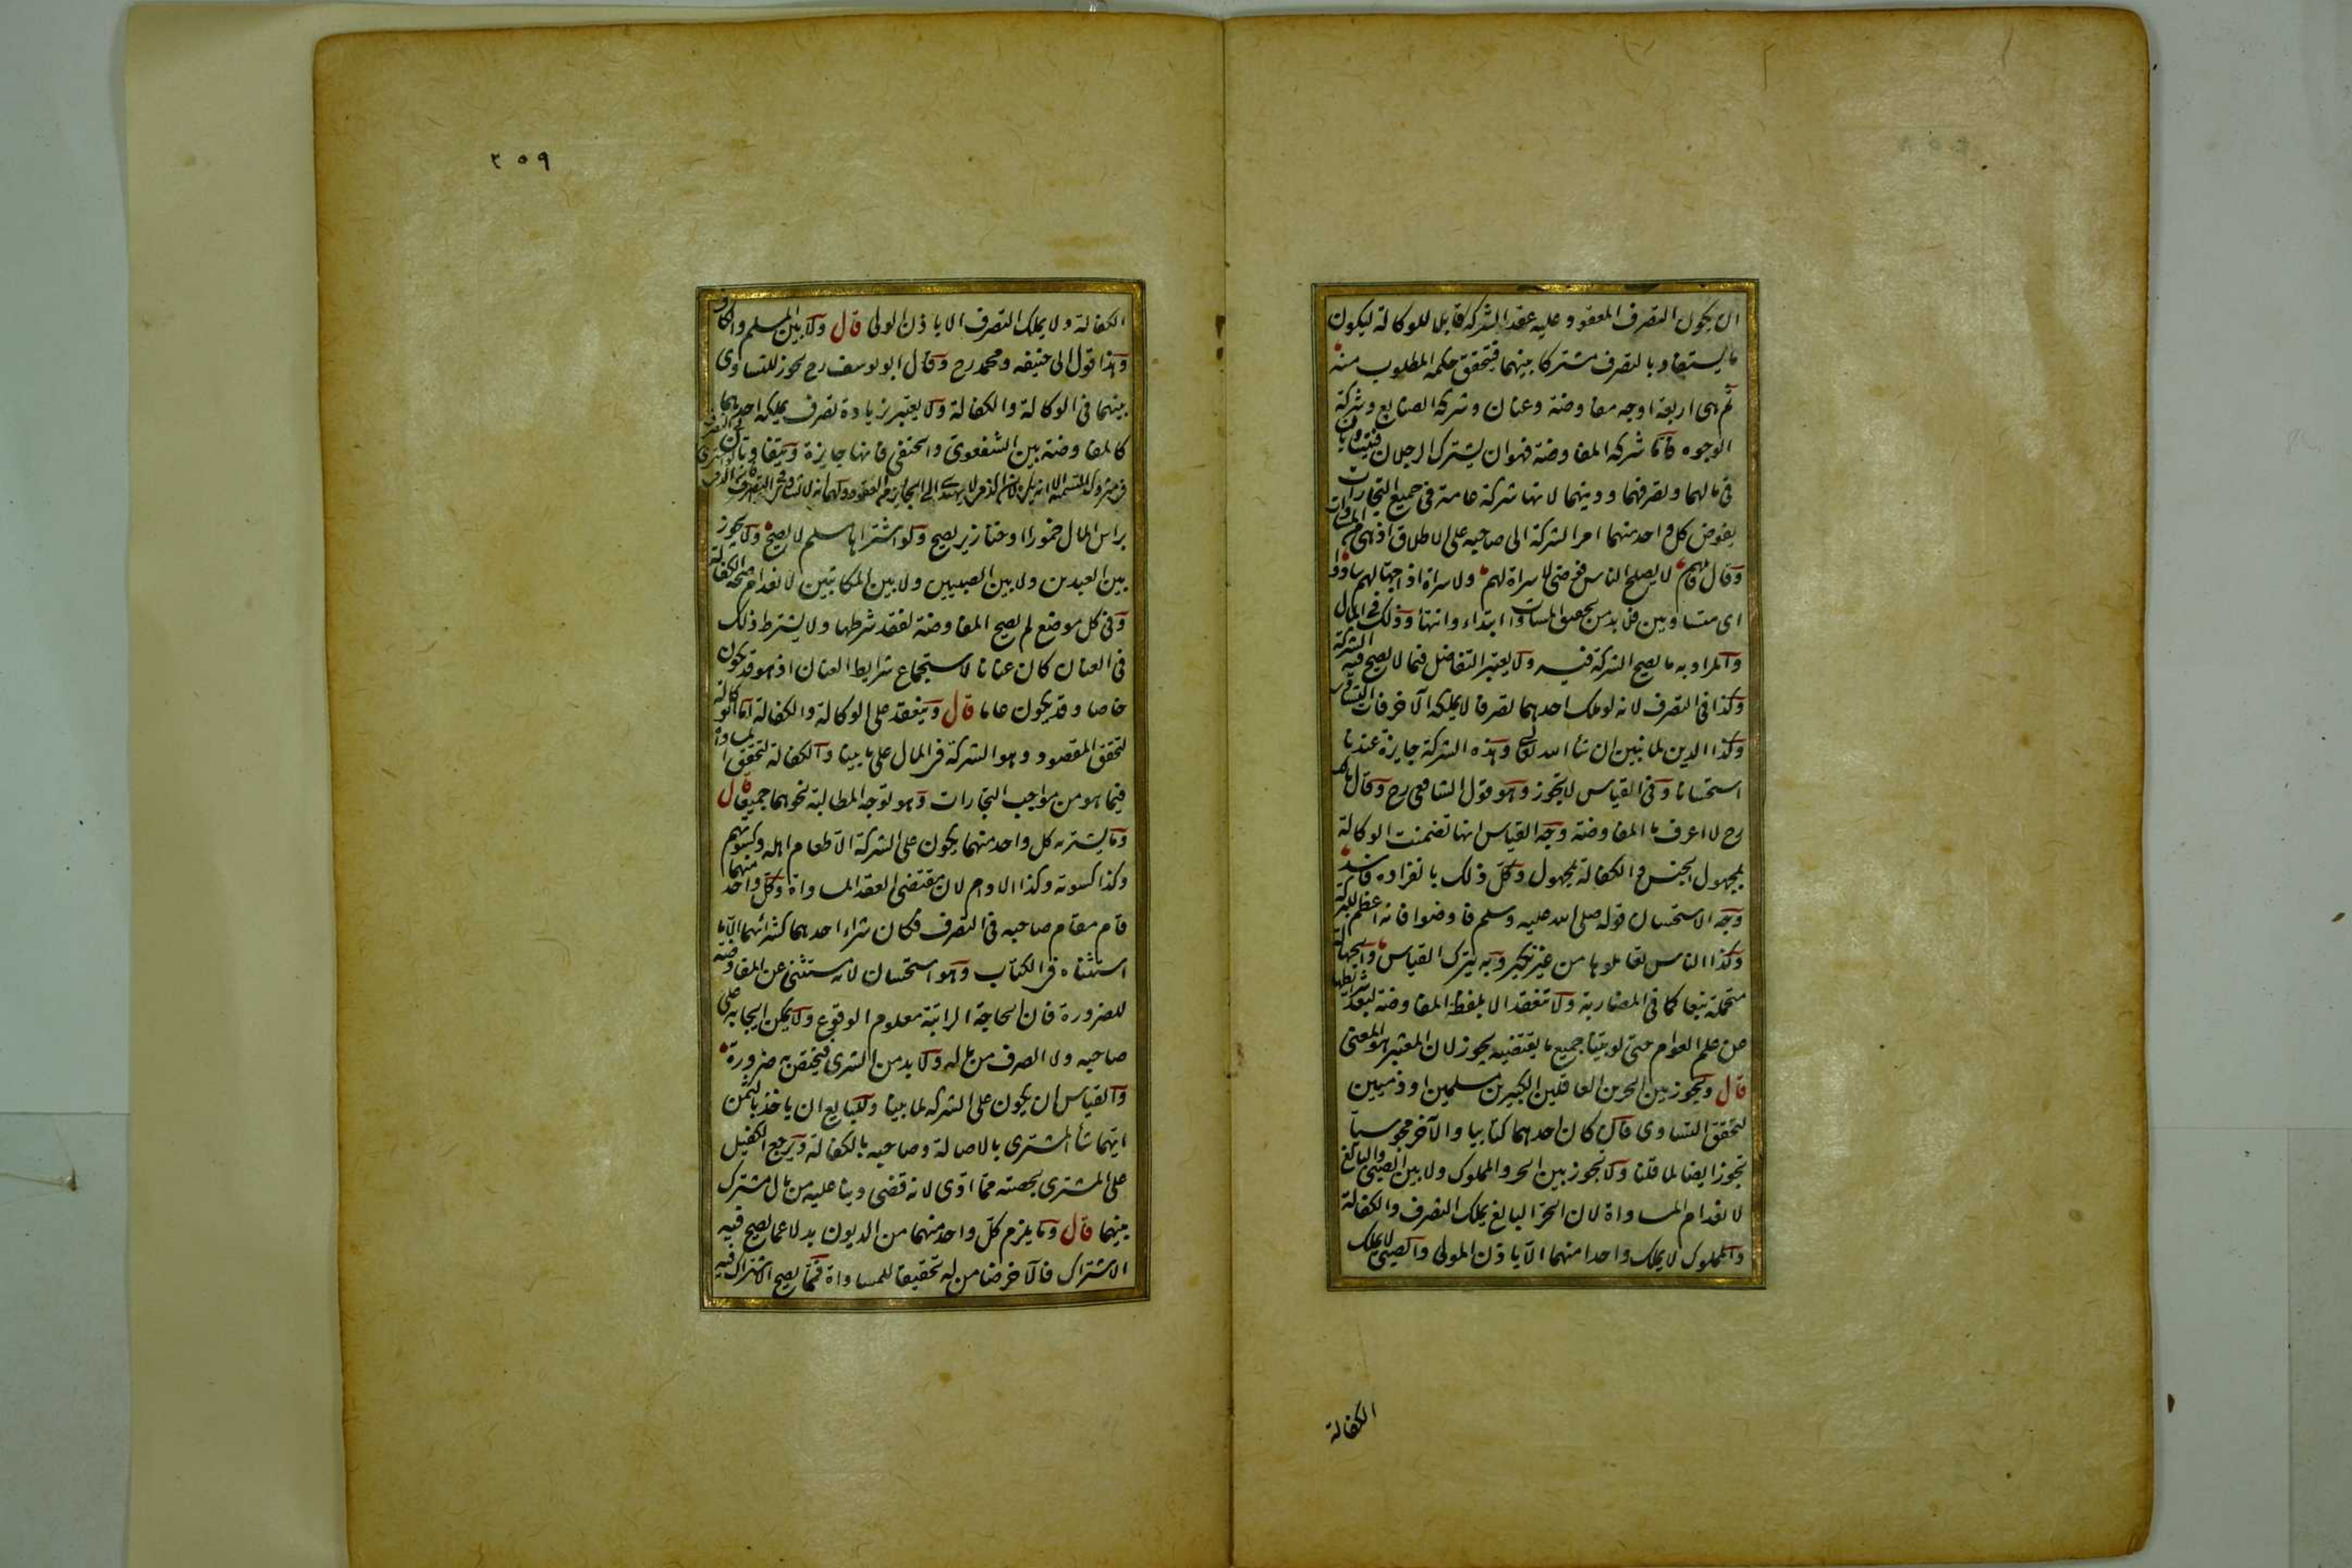 ان يكون التصرف المعقود عليه عقد الشركة قابلا للوكالة ليكون
ما يستفاد بالتصرف مشتركا بينهما فيتحقق حكمه المطلوب منه
ثم هى اربعة اوجه مفاوضة وعنان وشركة الصنايع وشركة
الوجوه فاما شركة المفاوضة فهوان يشترك الرجلان فيتساويان
فى مالهما وتصرفهما ودينهما لانها شركة عامة فى جميع التجارات
يفوض كل واحد منهما امر الشركة الى صاحبه على الاطلاق اذ هى من المساوات
وقال قائلهم لا يصلح الناس فوضى لا سراة لهم ولا سراة اذا جهالهم سادوا
اى متساويين فلا بد من تحقيق المساوات ابتداء وانتهاء وذلك فى المال
والمراد به ما يصح الشركة فيه ولا يعتبر التفاضل فيما لا يصح فيه الشركة
وكذا فى التصرف لانه لو ملك احدهما تصرفا لا يملكه الآخر فات التساوى
وكذا الدين لما نبين ان شاء الله تعالى وهذه الشركة جايزة عندنا
استحسانا وفى القياس لا يجوز وهو قول الشافعى رح وقال مالك
رح لا اعرف ما المفاوضة وجه القياس انها تضمنت الوكالة
بمجهول الجنس والكفالة بمجهول وكل ذلك بانفراده فاسد
وجه الاستحسان قوله صلى الله عليه وسلم فاوضوا فانه اعظم للبركة
وكذا الناس تعاملوها من غير نكير وبه يترك القياس والجهالة
متحملة تبعا كما فى المضاربة ولا تنعقد الا بلفظة المفاوضة لبعد شرايطها
عن علم العوام حتى لو بينا جميع ما يقتضيه يجوز لان المعتبر هو المعنى
قال ويجوز بين الحرين العاقلين الكبيرين مسلمين او ذميين
لتحقق التساوى فان كان احدهما كتابيا والآخر مجوسيا
تجوز ايضا لما قلنا ولا يجوز بين الحر والمملوك ولا بين الصبى والبالغ
لانعدام المساواة لان الحر البالغ يملك التصرف والكفالة
والمملوك لا يملك واحدا منهما الا باذن المولى والصبى لا يملك
الكفالة
٢٥٩
الكفالة ولا يملك التصرف الا باذن الولى قال ولا بين المسلم والكافر
وهذا قول ابى حنيفه ومحمد رح وقال ابو يوسف رح يجوز للتساوى
بينهما فى الوكالة والكفالة ولا يعتبر بزيادة تصرف يملكه احدهما
كالمفاوضة بين الشفعوى والحنفى فانها جايزة ويتفاوتان فى التصرف
فى متروك التسمية الا انه يكره لان الذمى لا يهتدى الى الجايز من العقود ولهما انه لا تساوى فى التصرف فان الذمى لو اشترى
براس المال خمورا او خنازير يصح ولو اشتراها مسلم لا يصح ولا يجوز
بين العبدين ولا بين الصبيين ولا بين المكاتبين لانعدام صحة الكفالة
وفى كل موضع لم يصح المفاوضة لفقد شرطها ولا يشترط ذلك
فى العنان كان عنانا لاستجماع شرايط العنان اذ هو قد يكون
خاصا وقد يكون عاما قال وينعقد على الوكالة والكفالة اما الوكالة
لتحقق المقصود وهو الشركة فى المال على ما بينا والكفالة لتحقق المساواة
فيما هو من مواجب التجارات وهو توجه المطالبة نحوهما جميعا قال
وما يشتريه كل واحد منهما يكون على الشركة الا طعام اهله وكسوتهم
وكذا كسوته وكذا الادام لان مقتضى العقد المساواة وكل واحد منهما
قام مقام صاحبه فى التصرف فكان شراء احدهما كشرائهما الا ما
استثناه فى الكتاب وهو استحسان لانه مستثنى عن المفاوضة
للضرورة فان الحاجة الراتبة معلوم الوقوع ولا يمكن ايجابه على
صاحبه ولا الصرف من ماله ولا بد من الشرى فيختص به ضرورة
والقياس ان يكون على الشركة لما بينا وللبايع ان ياخذ بالثمن
ايهما شاء المشترى بالاصالة وصاحبه بالكفالة ويرجع الكفيل
على المشترى بحصته مما ادى لانه قضى دينا عليه من مال مشترك
بينهما قال وما يلزم كل واحد منهما من الديون بدلا عما يصح فيه
الاشتراك فالآخر ضامن له تحقيقا للمساواة فمما يصح الاشتراك فيه